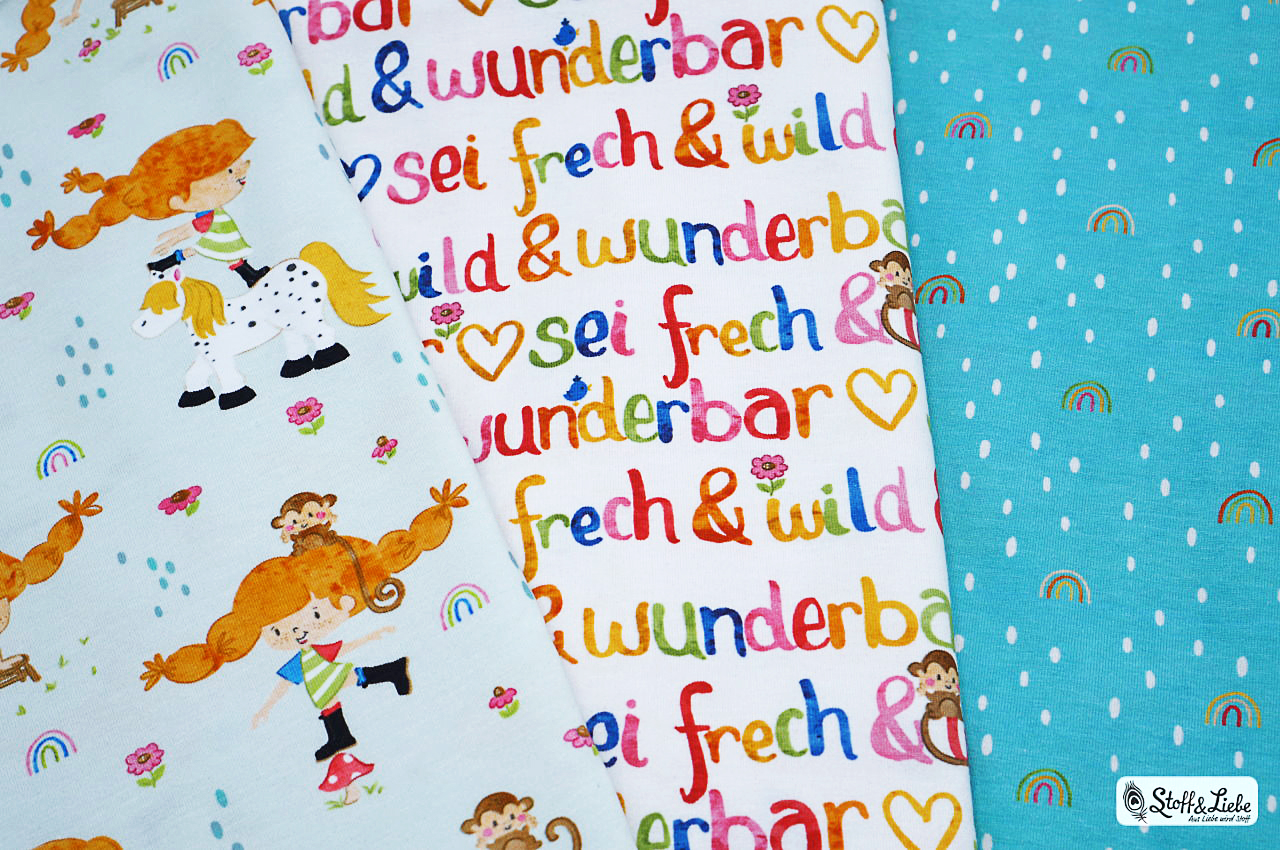 rbar ♡ sei f
ld & wunderbar ♡
♡ sei frech & wild
wild & wunderba
r ♡ sei frech &
wunderbar ♡
frech & wild
& wunderba
sei frech &
wunderbar ♡
Stoff & Liebe
Aus Liebe wird Stoff